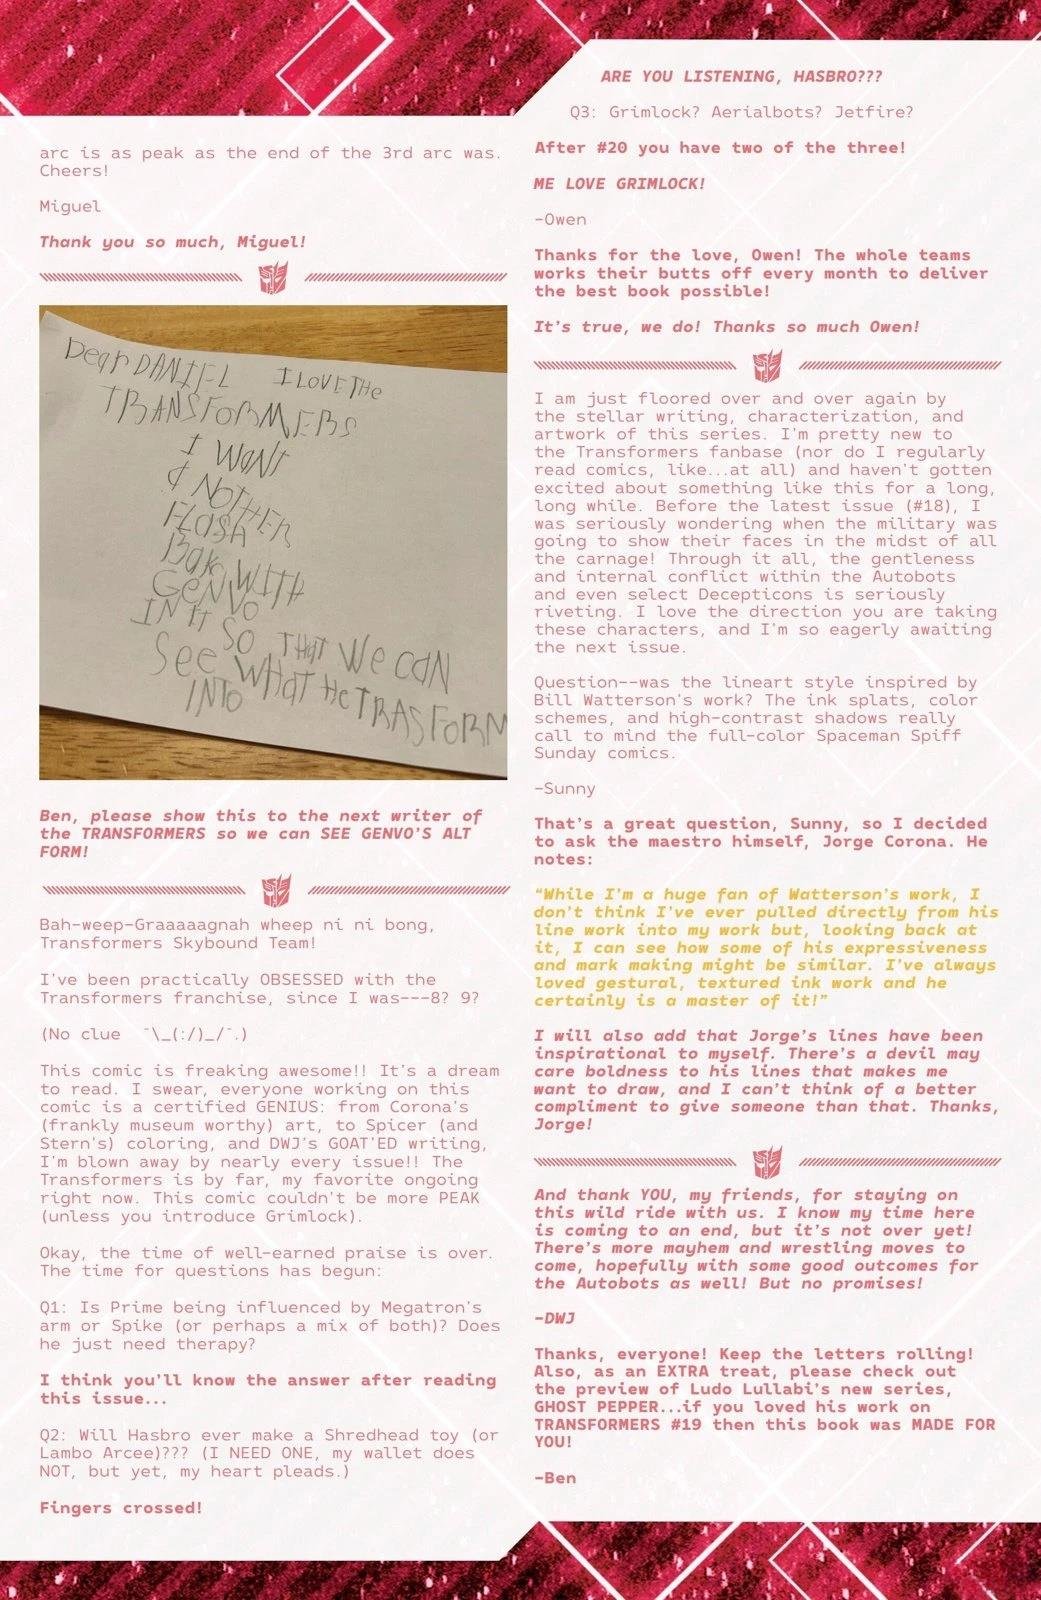 arc is as peak as the end of the 3rd arc was.
Cheers!
Miguel
Thank you so much, Miguel!
Dear DANIEL I LOVE THE
TRANSFORMERS
I WANT
A NOTHER
FLASH
Bak WITH
GENVO
IN IT SO THAT WE CAN
See WHAT HE TRASFORM
INTO
Ben, please show this to the next writer of
the TRANSFORMERS so we can SEE GENVO'S ALT
FORM!
Bah-weep-Graaaaagnah wheep ni ni bong,
Transformers Skybound Team!
I've been practically OBSESSED with the
Transformers franchise, since I was---8? 9?
(No clue ¯\_(:/)_/¯.)
This comic is freaking awesome!! It's a dream
to read. I swear, everyone working on this
comic is a certified GENIUS: from Corona's
(frankly museum worthy) art, to Spicer (and
Stern's) coloring, and DWJ's GOAT'ED writing,
I'm blown away by nearly every issue!! The
Transformers is by far, my favorite ongoing
right now. This comic couldn't be more PEAK
(unless you introduce Grimlock).
Okay, the time of well-earned praise is over.
The time for questions has begun:
Q1: Is Prime being influenced by Megatron's
arm or Spike (or perhaps a mix of both)? Does
he just need therapy?
I think you'll know the answer after reading
this issue...
Q2: Will Hasbro ever make a Shredhead toy (or
Lambo Arcee)??? (I NEED ONE, my wallet does
NOT, but yet, my heart pleads.)
Fingers crossed!
ARE YOU LISTENING, HASBRO???
Q3: Grimlock? Aerialbots? Jetfire?
After #20 you have two of the three!
ME LOVE GRIMLOCK!
-Owen
Thanks for the love, Owen! The whole teams
works their butts off every month to deliver
the best book possible!
It's true, we do! Thanks so much Owen!
I am just floored over and over again by
the stellar writing, characterization, and
artwork of this series. I'm pretty new to
the Transformers fanbase (nor do I regularly
read comics, like...at all) and haven't gotten
excited about something like this for a long,
long while. Before the latest issue (#18), I
was seriously wondering when the military was
going to show their faces in the midst of all
the carnage! Through it all, the gentleness
and internal conflict within the Autobots
and even select Decepticons is seriously
riveting. I love the direction you are taking
these characters, and I'm so eagerly awaiting
the next issue.
Question--was the lineart style inspired by
Bill Watterson's work? The ink splats, color
schemes, and high-contrast shadows really
call to mind the full-color Spaceman Spiff
Sunday comics.
-Sunny
That's a great question, Sunny, so I decided
to ask the maestro himself, Jorge Corona. He
notes:
"While I'm a huge fan of Watterson's work, I
don't think I've ever pulled directly from his
line work into my work but, looking back at
it, I can see how some of his expressiveness
and mark making might be similar. I've always
loved gestural, textured ink work and he
certainly is a master of it!"
I will also add that Jorge's lines have been
inspirational to myself. There's a devil may
care boldness to his lines that makes me
want to draw, and I can't think of a better
compliment to give someone than that. Thanks,
Jorge!
And thank YOU, my friends, for staying on
this wild ride with us. I know my time here
is coming to an end, but it's not over yet!
There's more mayhem and wrestling moves to
come, hopefully with some good outcomes for
the Autobots as well! But no promises!
-DWJ
Thanks, everyone! Keep the letters rolling!
Also, as an EXTRA treat, please check out
the preview of Ludo Lullabi's new series,
GHOST PEPPER...if you loved his work on
TRANSFORMERS #19 then this book was MADE FOR
YOU!
-Ben